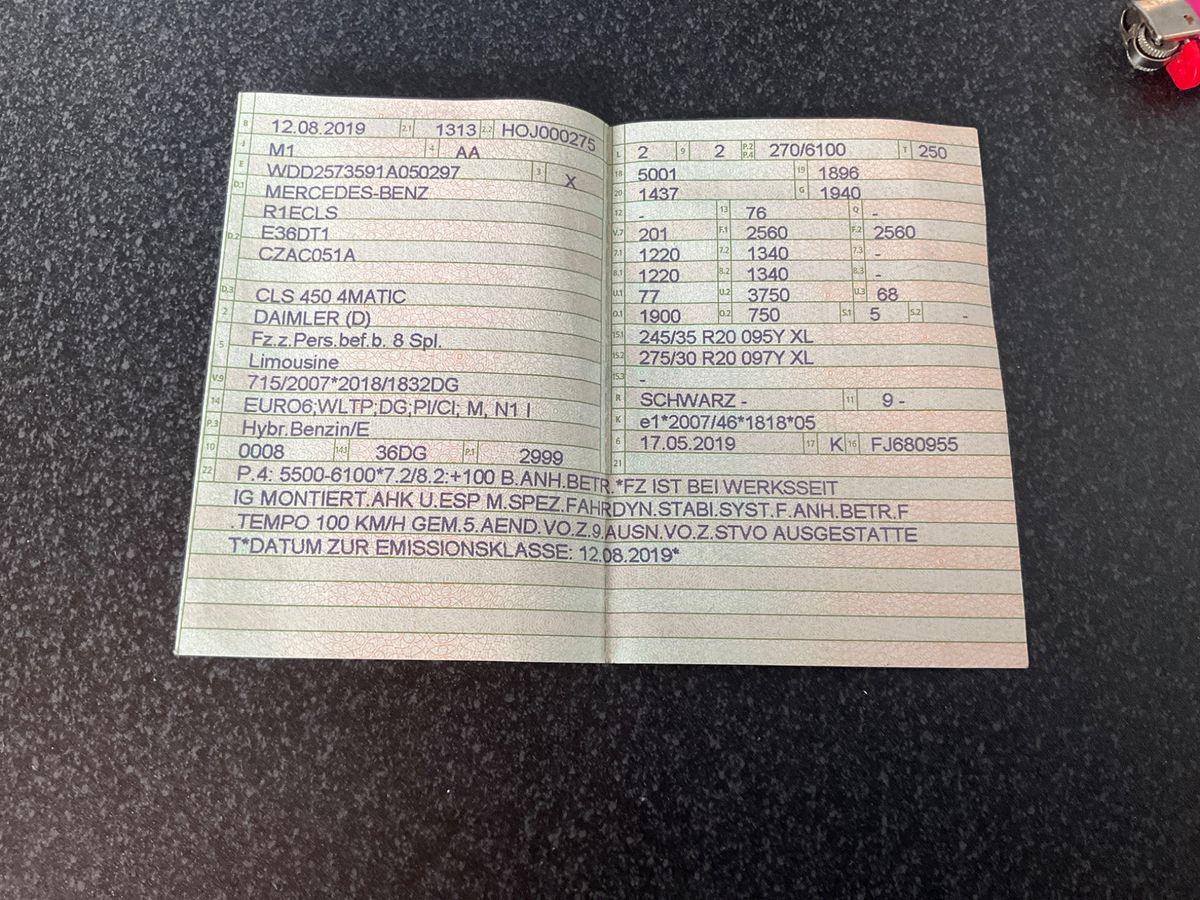 B 12.08.2019 2.1 1313 2.2 HOJ000275
J M1 4 AA
E WDD2573591A050297 3 X
D.1 MERCEDES-BENZ
R1ECLS
D.2 E36DT1
CZAC051A
D.3 CLS 450 4MATIC
2 DAIMLER (D)
5 Fz.z.Pers.bef.b. 8 Spl.
Limousine
V.9 715/2007*2018/1832DG
14 EURO6;WLTP;DG;PI/CI; M, N1 I
P.3 Hybr.Benzin/E
10 0008 14.1 36DG P.1 2999
L 2 9 2 P.2 P.4 270/6100 T 250
18 5001 19 1896
20 1437 G 1940
12 - 13 76 Q -
V.7 201 F.1 2560 F.2 2560
7.1 1220 7.2 1340 7.3 -
8.1 1220 8.2 1340 8.3 -
U.1 77 U.2 3750 U.3 68
O.1 1900 O.2 750 S.1 5 S.2 -
15.1 245/35 R20 095Y XL
15.2 275/30 R20 097Y XL
15.3 -
R SCHWARZ - 11 9 -
K e1*2007/46*1818*05
6 17.05.2019 17 K 16 FJ680955
21
22 P.4: 5500-6100*7.2/8.2:+100 B.ANH.BETR.*FZ IST BEI WERKSSEIT
IG MONTIERT.AHK U.ESP M.SPEZ.FAHRDYN.STABI.SYST.F.ANH.BETR.F
.TEMPO 100 KM/H GEM.5.AEND.VO.Z.9.AUSN.VO.Z.STVO AUSGESTATTE
T*DATUM ZUR EMISSIONSKLASSE: 12.08.2019*